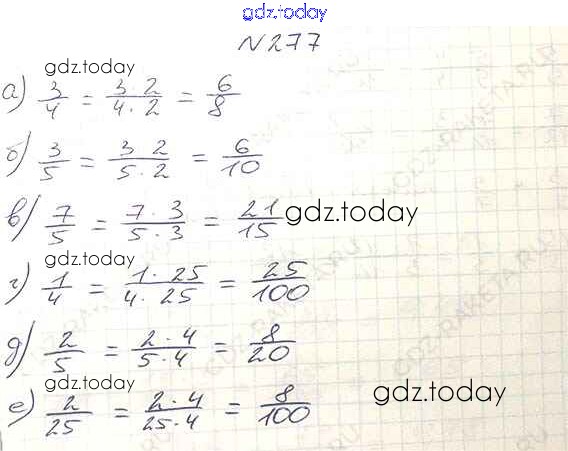 gdz.today
N277
gdz.today
а) 3/4 = 3 2/4·2 = 6/8
б) 3/5 = 3 2/5·2 = 6/10
в) 7/5 = 7·3/5·3 = 21/15 gdz.today
gdz.today
г) 1/4 = 1·25/4·25 = 25/100
д) 2/5 = 2·4/5·4 = 8/20
gdz.today
е) 2/25 = 2·4/25·4 = 8/100 gdz.today